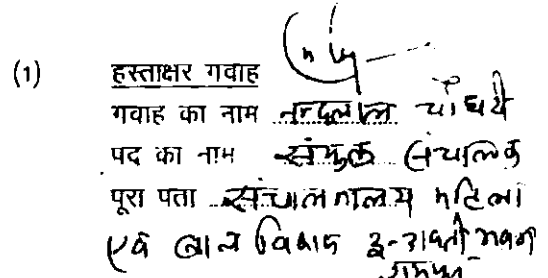 (1) हस्ताक्षर गवाह
गवाह का नाम नन्दलाल चौधरी
पद का नाम संयुक्त संचालक
पूरा पता संचालनालय महिला
एवं बाल विकास इन्द्रावती भवन
रायपुर